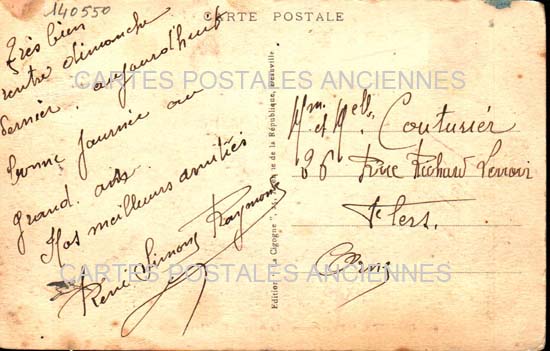 140550
CARTE POSTALE
Très bien
rentre dimanche
dernier. aujourd'hui
bonne journée au
grand air.
Nos meilleurs amitiés
René Simone Raymonde
Edition "La Cigogne", de la République,
Mm. et Mell. Couturier
86 Rue Richard Lenoir
Flers.
Orne
CARTES POSTALES ANCIENNES
CARTES POSTALES ANCIENNES